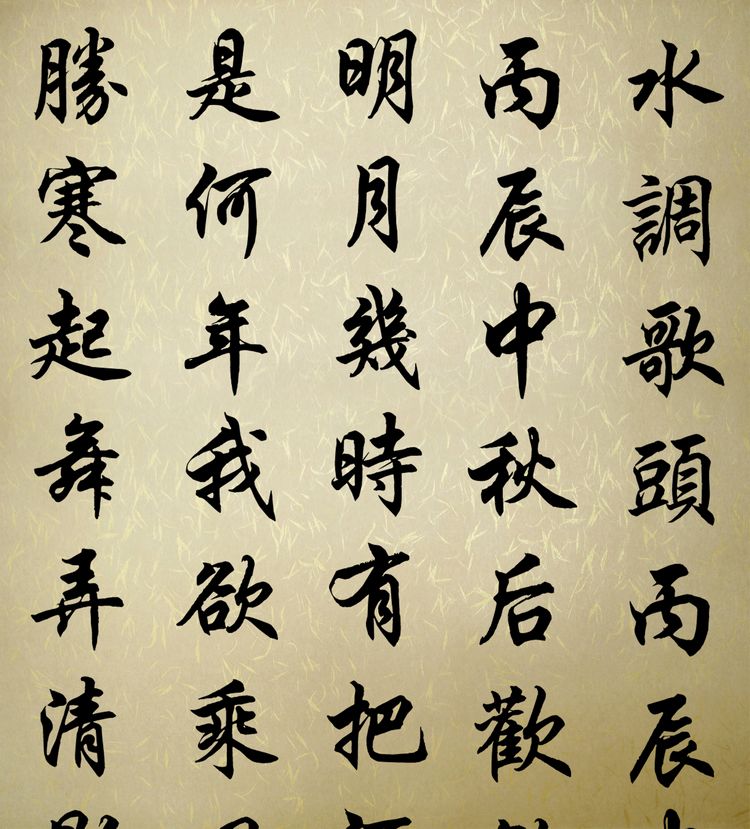 水調歌頭丙辰
丙辰中秋后歡
明月幾時有把
是何年我欲乘
勝寒起舞弄清